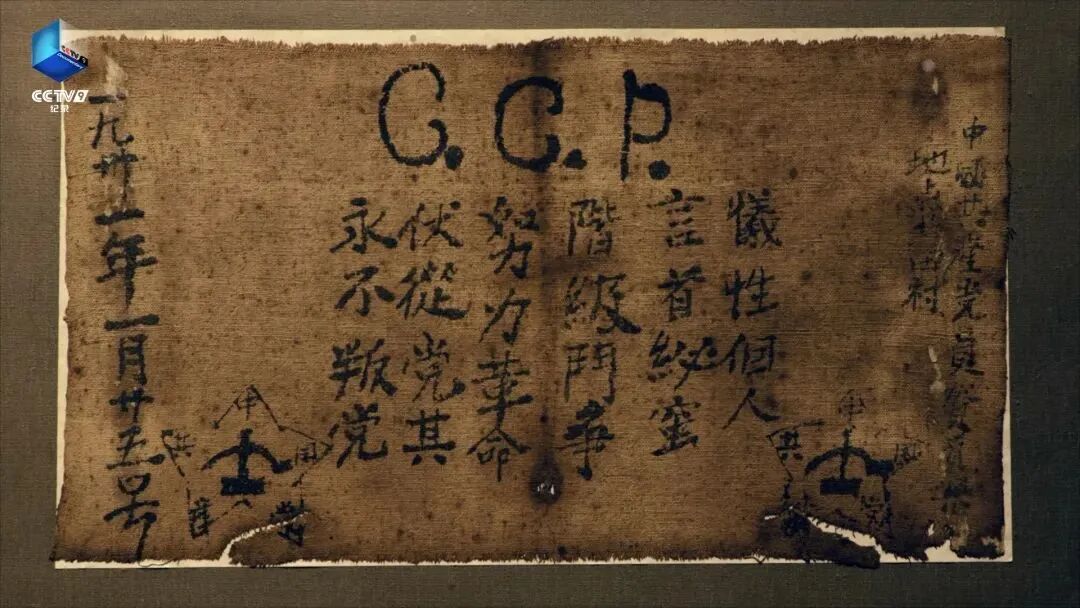 CCTV9
纪录
C.C.P.
中國共產党員
地点 田村
犧性個人
言首秘蜜
階級鬥争
努力革命
伏從党其
永不叛党
一九卅一年一月廿五号
中
共
中
共